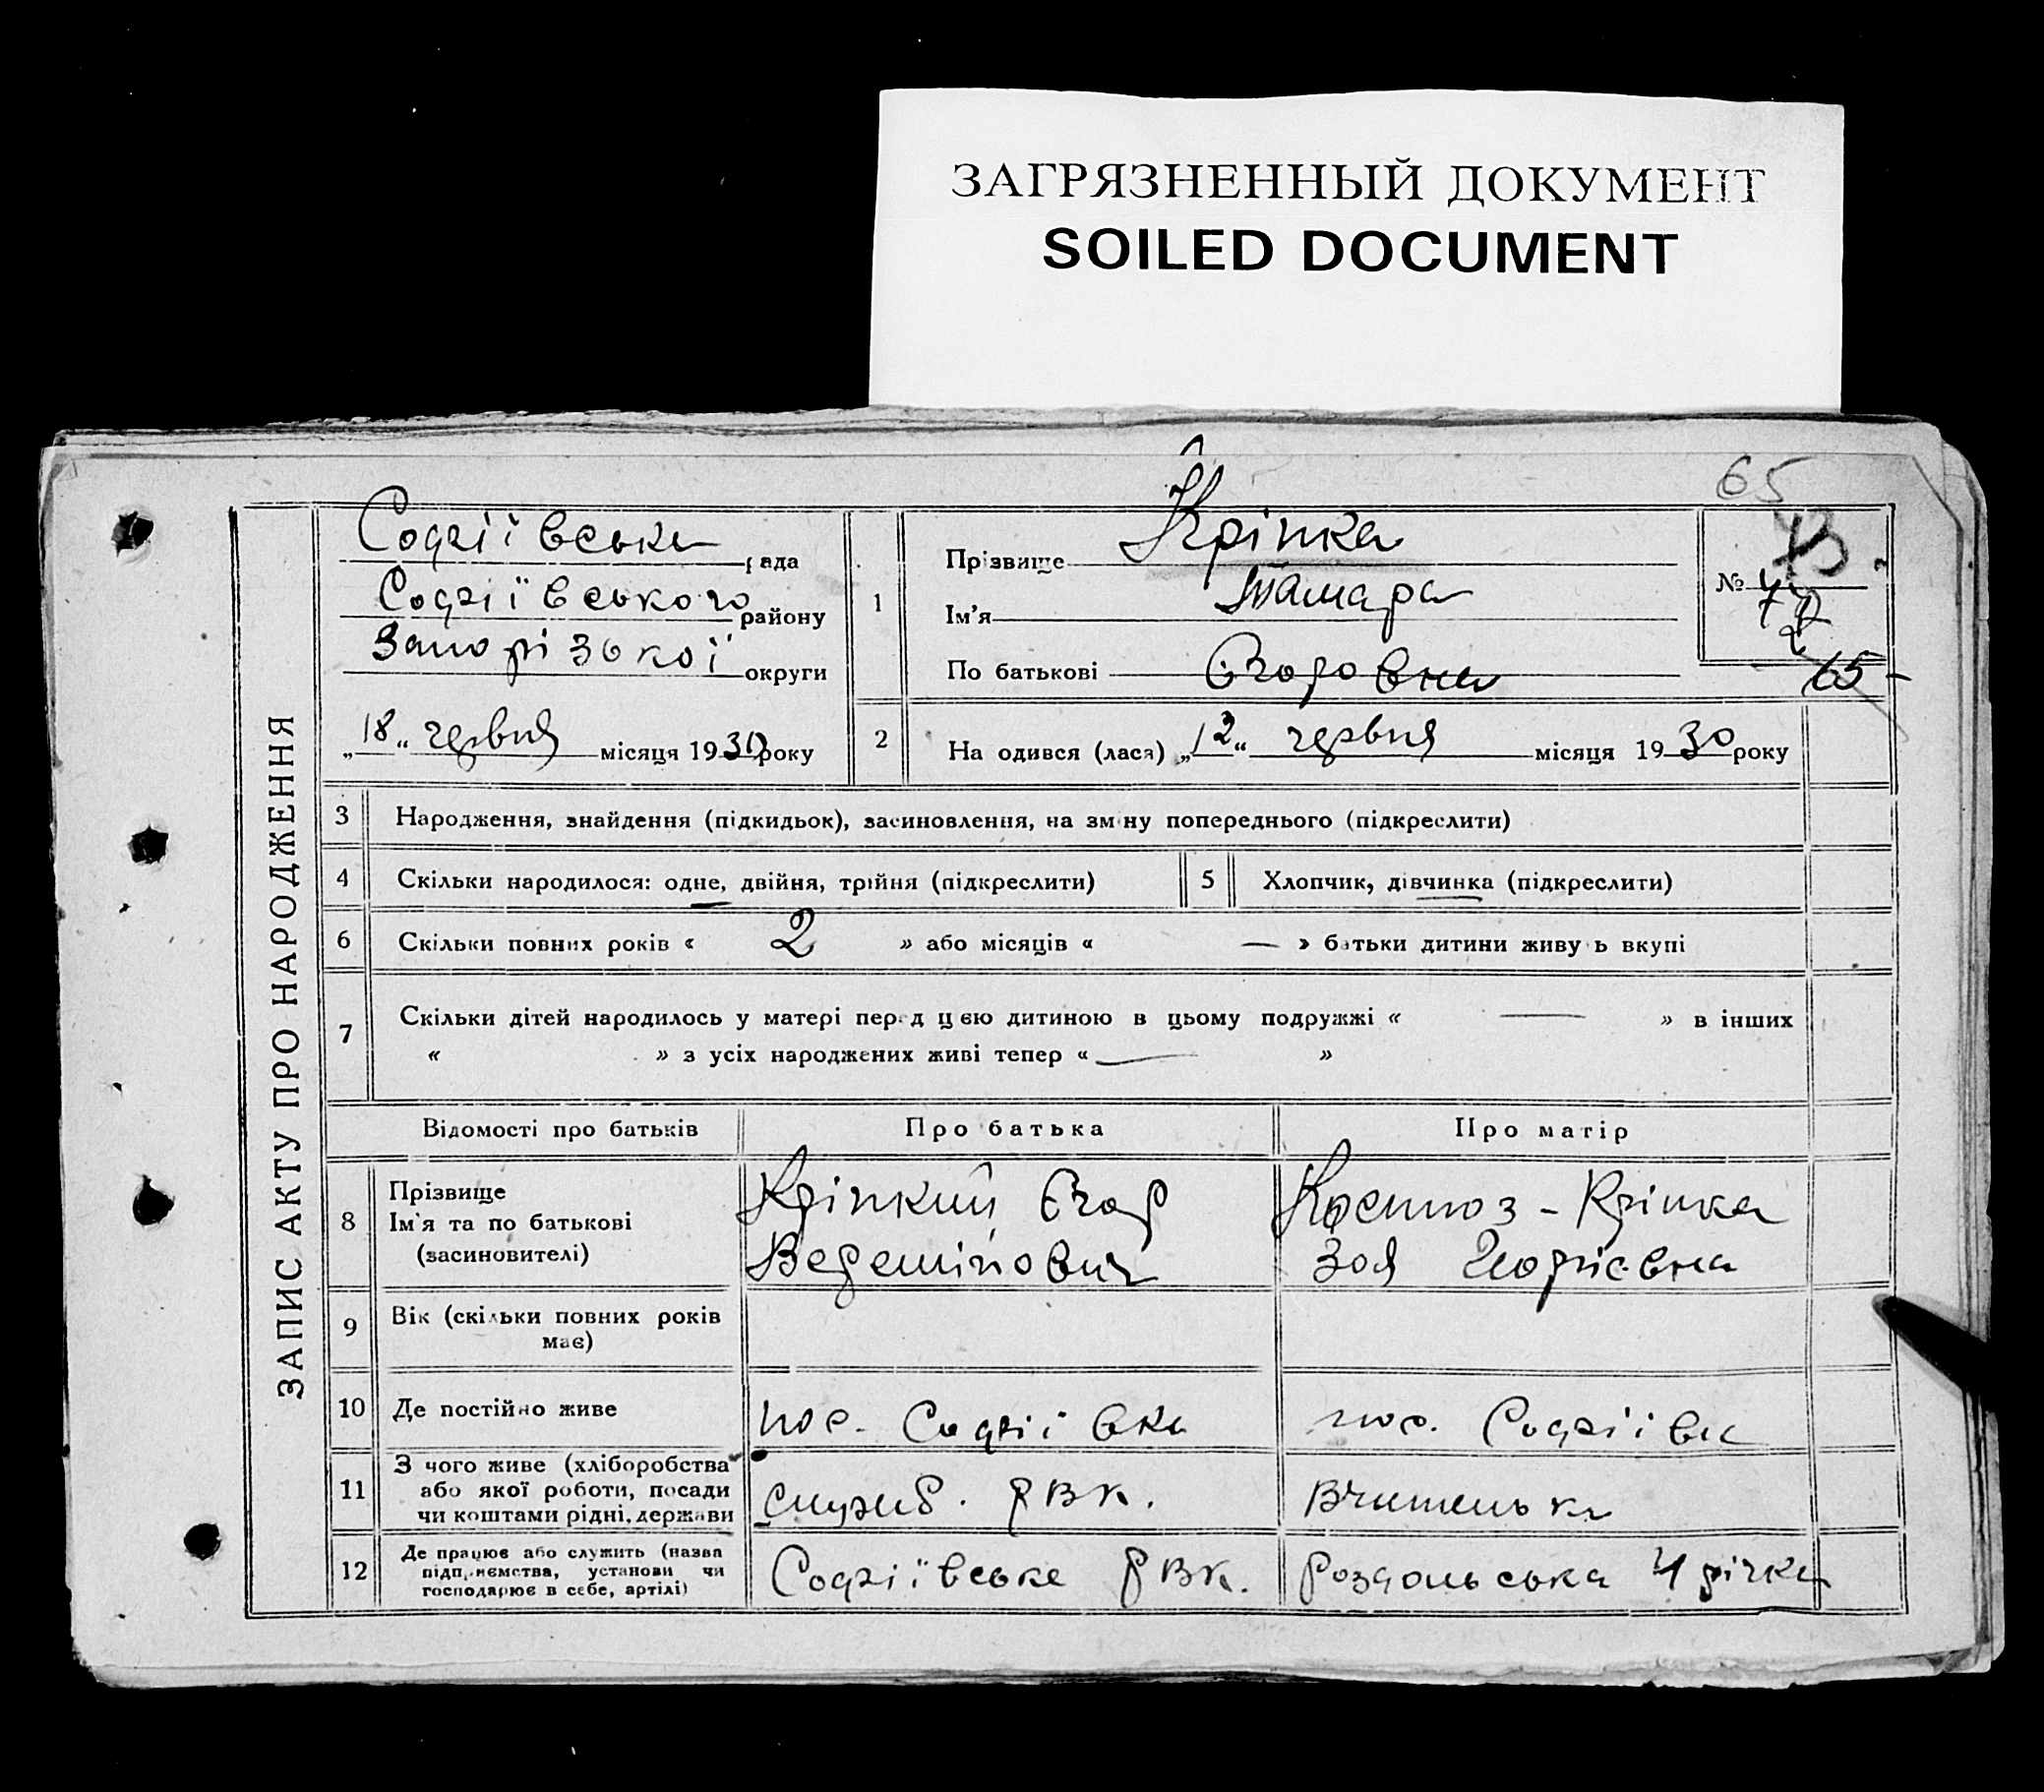 ЗАГРЯЗНЕННЫЙ ДОКУМЕНТ
SOILED DOCUMENT
65
ЗАПИС АКТУ ПРО НАРОДЖЕННЯ
Софіївська рада
Софіївського району
Запорізької округи
„18“ червня місяця 1930 року
1
Прізвище Кріпка
Ім'я Тамара
По батькові Єгоровна
№
65
2 На одився (лася) „12“ червня місяця 1930 року
3 Народження, знайдення (підкидьок), засиновлення, на зміну попереднього (підкреслити)
4 Скільки народилося: одне, двійня, трійня (підкреслити) 5 Хлопчик, дівчинка (підкреслити)
6 Скільки повних років « 2 » або місяців « — » батьки дитини живуть вкупі
7 Скільки дітей народилось у матері перед цією дитиною в цьому подружжі « — » в інших
« » з усіх народжених живі тепер « — »
Відомості про батьків Про батька Про матір
8 Прізвище Ім'я та по батькові (засиновителі)
Кріпкий Єгор
- Кріпка
Зоя
9 Вік (скільки повних років має)
10 Де постійно живе пос. Софіївка пос. Софіївка
11 З чого живе (хліборобства
або якої роботи, посади
чи коштами рідні, держави
служб. РВК. Вчителька
12 Де працює або служить (назва
підприємства, установи чи
господарює в себе, артілі)
Софіївське РВК. Роздольська 4 річка